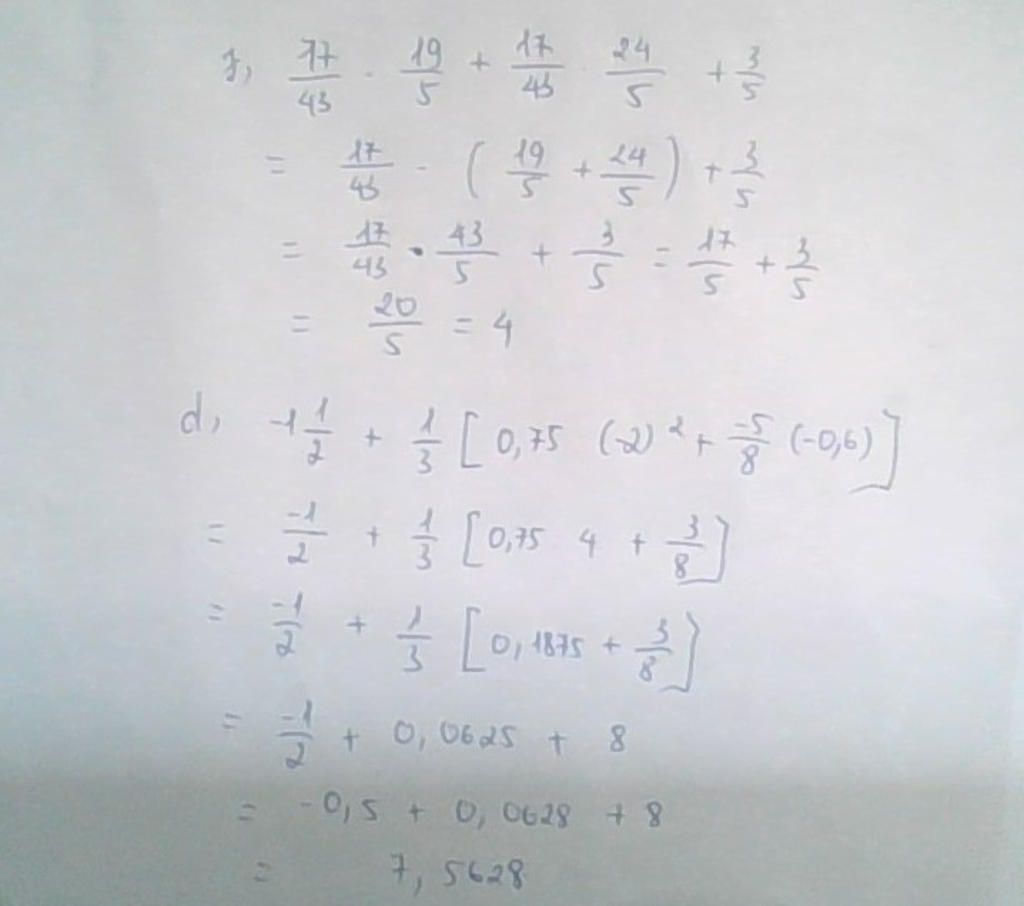 j, 17/43 . 19/5 + 17/43 . 24/5 + 3/5
= 17/43 . ( 19/5 + 24/5 ) + 3/5
= 17/43 . 43/5 + 3/5 = 17/5 + 3/5
= 20/5 = 4
d, -1 1/2 + 1/3 [ 0,75 (-2)² + -5/8 (-0,6) ]
= -1/2 + 1/3 [ 0,75 4 + 3/8 ]
= -1/2 + 1/3 [ 0,1875 + 3/8 ]
= -1/2 + 0,0625 + 8
= -0,5 + 0,0628 + 8
= 7,5628